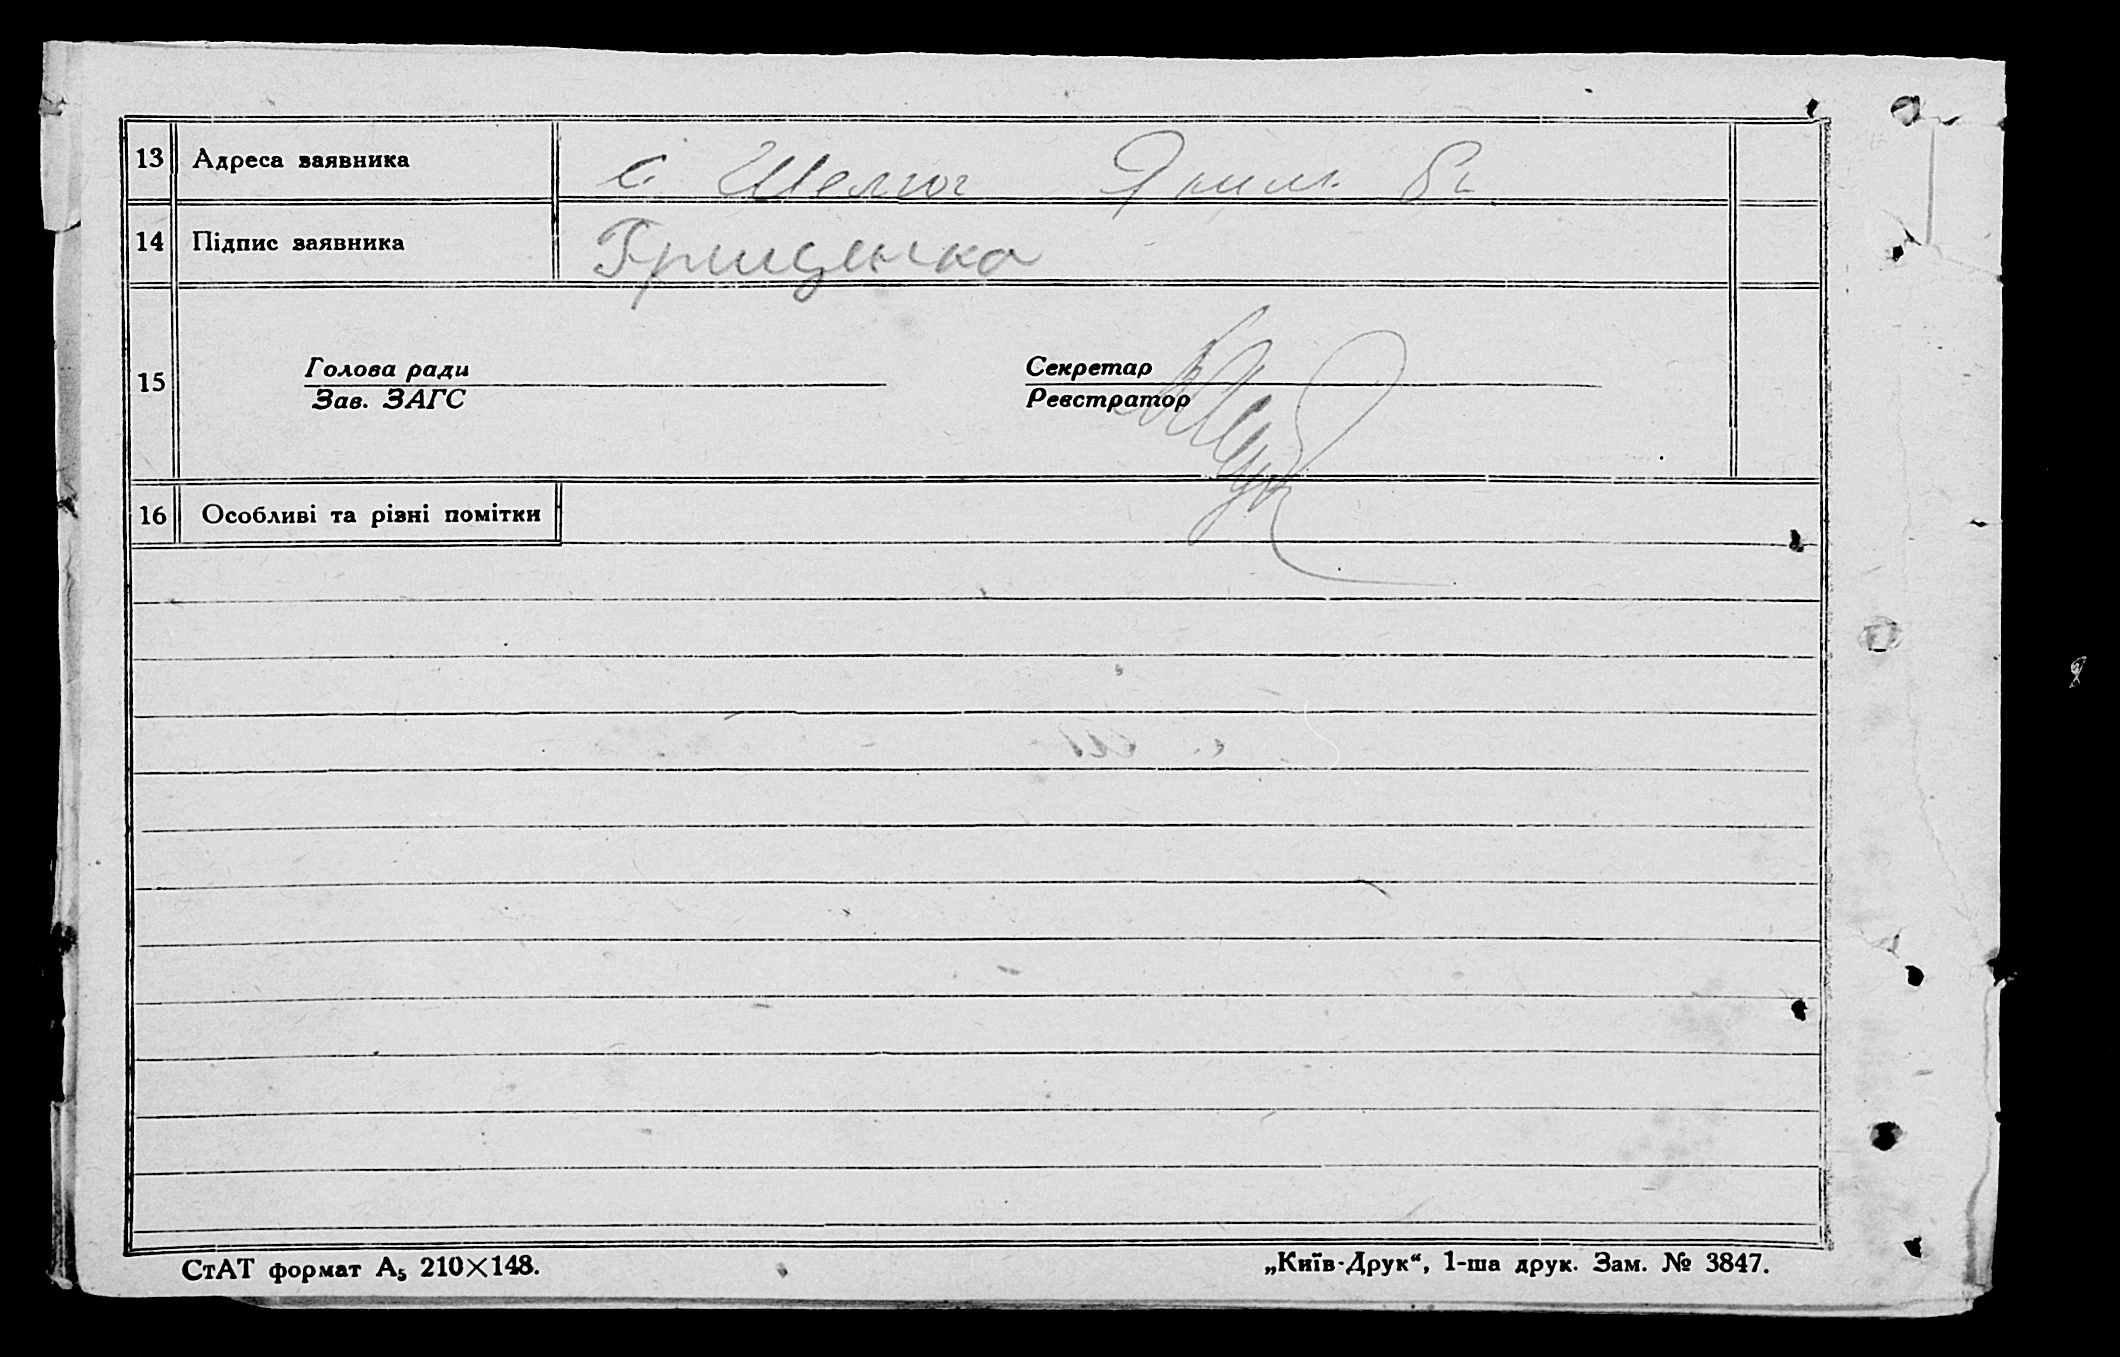 13 Адреса заявника с. Шелюг Яким.
14 Підпис заявника Грищенко
Голова ради Секретар
15
Зав. ЗАГС Реєстратор
16 Особливі та різні помітки
СтАТ формат А₅ 210×148. „Київ-Друк“, 1-ша друк. Зам. № 3847.